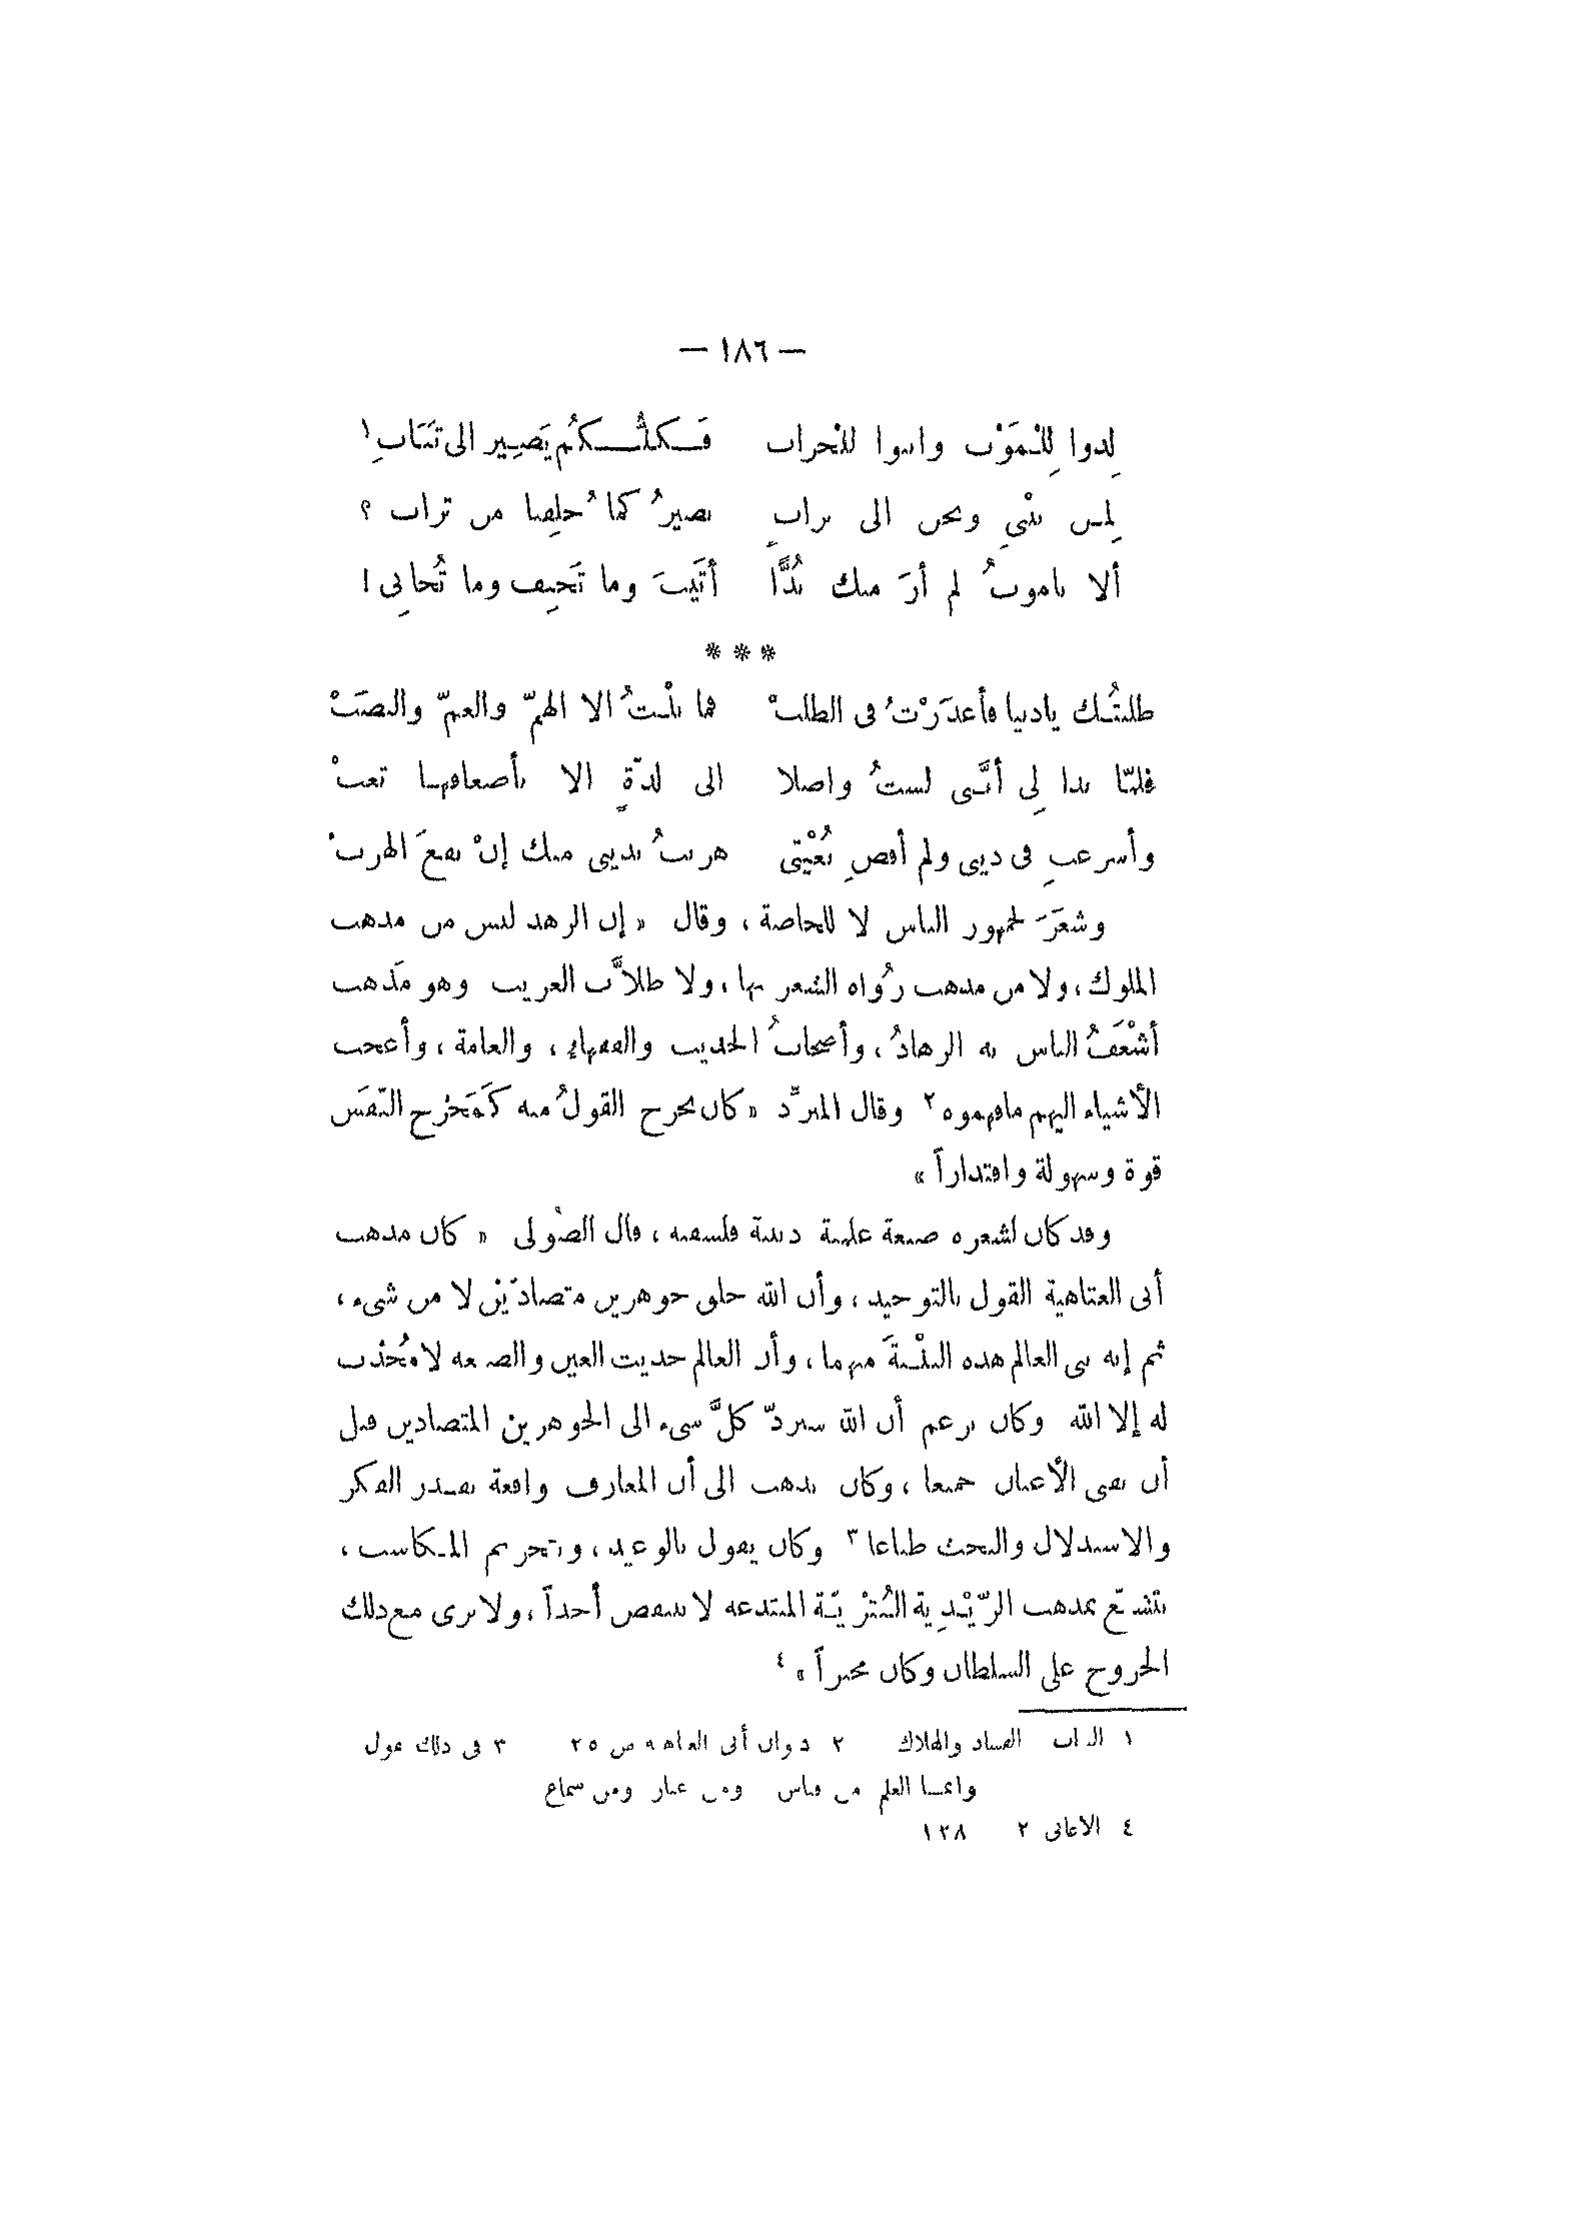 — ١٨٦ —
لِدوا لِلْمَوْت وابنوا للْخراب فَكلُّكُم يَصِير الى تَبَابِ١
لِمن نبْنىِ ونحن الى ترابٍ نصيرُ كما خُلِقنا من تراب ؟
ألا ياموتُ لم أرَ منك بُدًّا أتَيْتَ وما تَحِيف وما تُحابى !
* * *
طلبتُك يادنيا فأعذَرْتُ فى الطلبْ فما نلْتُ الا الهمّ والغمّ والنصَبْ
فلمّا بدا لِى أنَّنى لستُ واصلا الى لذّةٍ الا بأضعافها تعبْ
وأسرعتِ فى دينى ولم أقضِ بُغْيَتى هربتُ بدينى منك إنْ نفعَ الهربْ
وشعَرَ لجمهور الناس لا للخاصة ، وقال « إن الزهد ليس من مذهب
الملوك ، ولا من مذهب رُواه الشعر بها ، ولا طلاَّب الغريب وهو مَذهب
أشْغَفُ الناس به الزهادُ ، وأصحابُ الحديث والفقهاءِ ، والعامة ، وأعجب
الأشياء اليهم مافهموه ٢ وقال المبرِّد « كان يخرج القولُ منه كَمَخْرج النَّفَس
قوة وسهولة واقتداراً »
وقد كان لشعره صبغة علمية دينية فلسفيه ، قال الصُّولى « كان مذهب
أبى العتاهية القول بالتوحيد ، وأن الله خلق جوهرين متضادَّيْن لا من شىء ،
ثم إنه بنى العالم هذه البِنْيَةَ منهما ، وأن العالم حديث العين والصنعه لا مُحْدث
له إلا الله وكان يزعم أن الله سيردّ كلَّ شىء الى الجوهرين المتضادين قبل
أن تفنى الأعيان جميعا ، وكان يذهب الى أن المعارف واقعة بقدر الفكر
والاستدلال والبحث طباعا ٣ وكان يقول بالوعيد ، وبتحريم المكاسب ،
يتشيّع بمذهب الزَّيْدِية البُتْرِيَّة المبتدعه لا ينتقص أحداً ، ولا يرى مع ذلك
الخروج على السلطان وكان مجبراً » ٤
١ التباب الفساد والهلاك ٢ ديوان أبى العتاهيه ص ٢٥ ٣ فى ذلك يقول
وانما العلم من قياس ومن عيار ومن سماع
٤ الاغانى ٢ ١٢٨